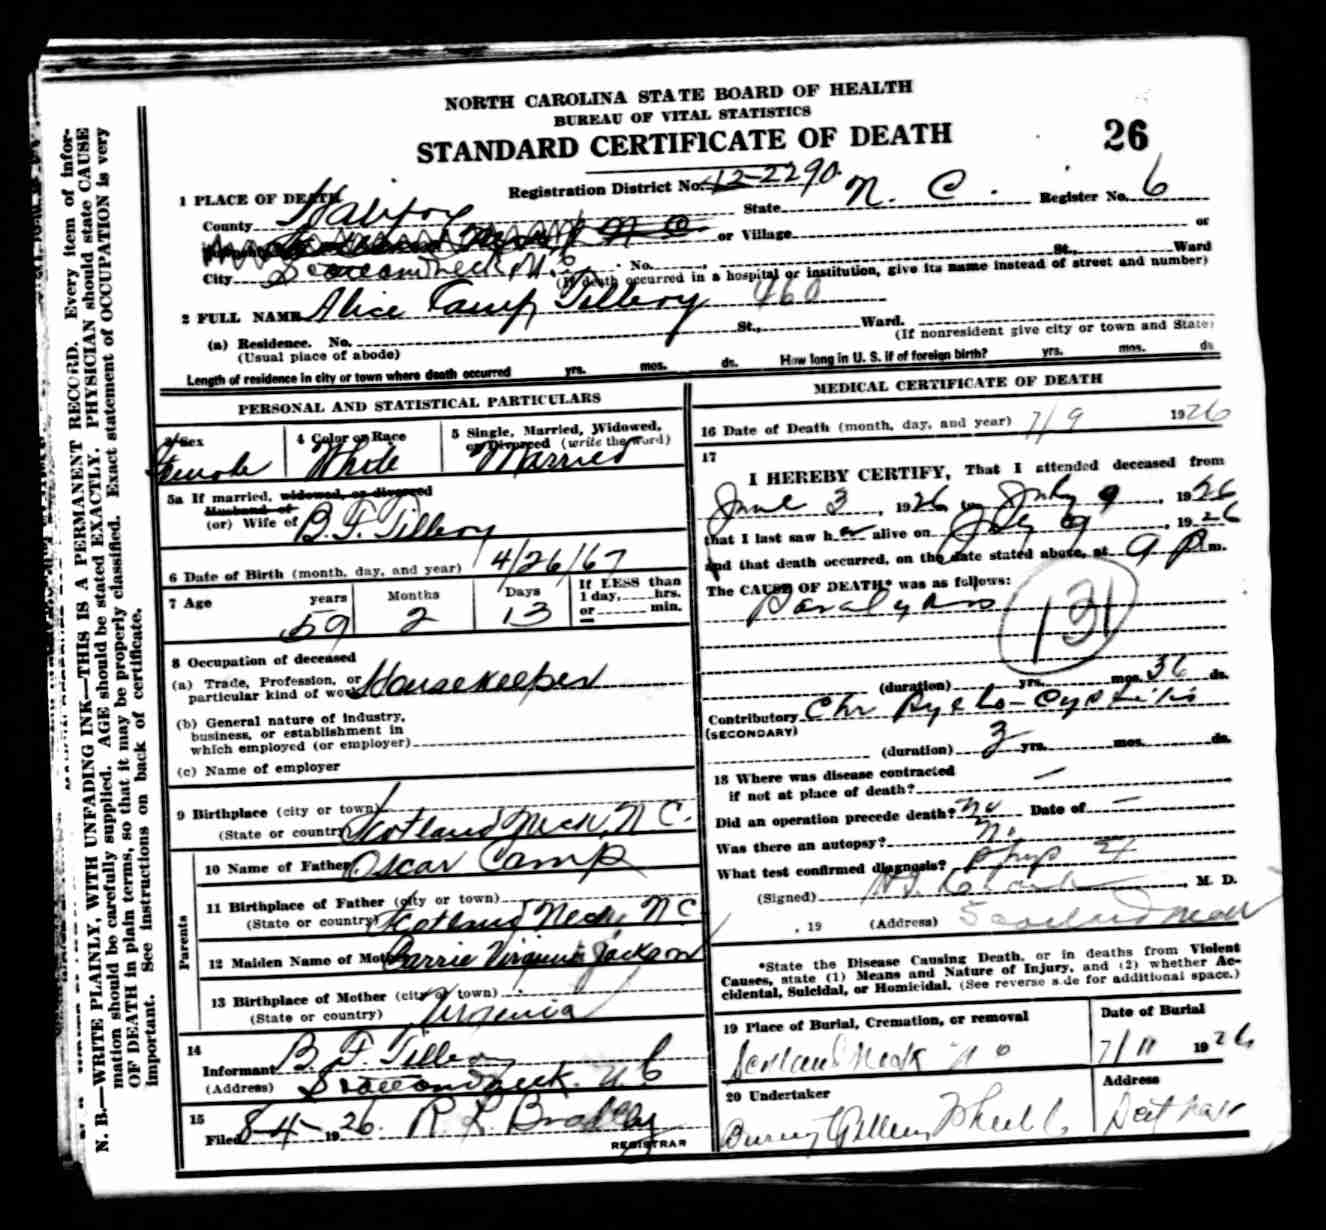 NORTH CAROLINA STATE BOARD OF HEALTH
BUREAU OF VITAL STATISTICS
STANDARD CERTIFICATE OF DEATH
26
1 PLACE OF DEATH
Registration District No. 42-2290.
State N. C. Register No. 6
County Halifax
or Village or
City N.C. No. St., Ward
(If death occurred in a hospital or institution, give its name instead of street and number)
2 FULL NAME Alice Camp Tillery 460
(a) Residence. No. St., Ward.
(Usual place of abode) (If nonresident give city or town and State)
Length of residence in city or town where death occurred yrs. mos. ds. How long in U. S. if of foreign birth? yrs. mos. ds.
PERSONAL AND STATISTICAL PARTICULARS
3 Sex 4 Color or Race 5 Single, Married, Widowed,
or Divorced (write the word)
Female White Married
5a If married, widowed, or divorced
Husband of
(or) Wife of B. F. Tillery
6 Date of Birth (month, day, and year) 4/26/67
7 Age years Months Days If LESS than
1 day, hrs.
or min.
59 2 13
8 Occupation of deceased
(a) Trade, Profession, or
particular kind of work Housekeeper
(b) General nature of industry,
business, or establishment in
which employed (or employer)
(c) Name of employer
9 Birthplace (city or town)
(State or country) Scotland Neck, N C.
Parents
10 Name of Father Oscar Camp
11 Birthplace of Father (city or town)
(State or country) Scotland Neck N C
12 Maiden Name of Mother Carrie Virginia Jackson
13 Birthplace of Mother (city or town)
(State or country) Virginia
14
Informant B. F. Tillery
(Address)
15
Filed 8-4- 1926. R. L. Bradley
REGISTRAR
MEDICAL CERTIFICATE OF DEATH
16 Date of Death (month, day, and year) 7/9 1926
17
I HEREBY CERTIFY, That I attended deceased from
June 3, 1926, to July 9, 1926
that I last saw her alive on July 9, 1926
and that death occurred, on the date stated above, at 9 p m.
The CAUSE OF DEATH* was as follows:
Paralysis
131
(duration) yrs. mos. 36 ds.
Contributory Chr Pyelo-Cystitis
(SECONDARY)
(duration) 3 yrs. mos. ds.
18 Where was disease contracted
if not at place of death? —
Did an operation precede death? No Date of —
Was there an autopsy? No
What test confirmed diagnosis?
(Signed) , M. D.
, 19 (Address) Scotland Neck
*State the Disease Causing Death, or in deaths from Violent
Causes, state (1) Means and Nature of Injury, and (2) whether Ac-
cidental, Suicidal, or Homicidal. (See reverse side for additional space.)
19 Place of Burial, Cremation, or removal Date of Burial
Scotland Neck N C 7/11 1926
20 Undertaker Address
N. B.—WRITE PLAINLY, WITH UNFADING INK—THIS IS A PERMANENT RECORD. Every item of infor-
mation should be carefully supplied. AGE should be stated EXACTLY. PHYSICIAN should state CAUSE
OF DEATH in plain terms, so that it may be properly classified. Exact statement of OCCUPATION is very
important. See instructions on back of certificate.